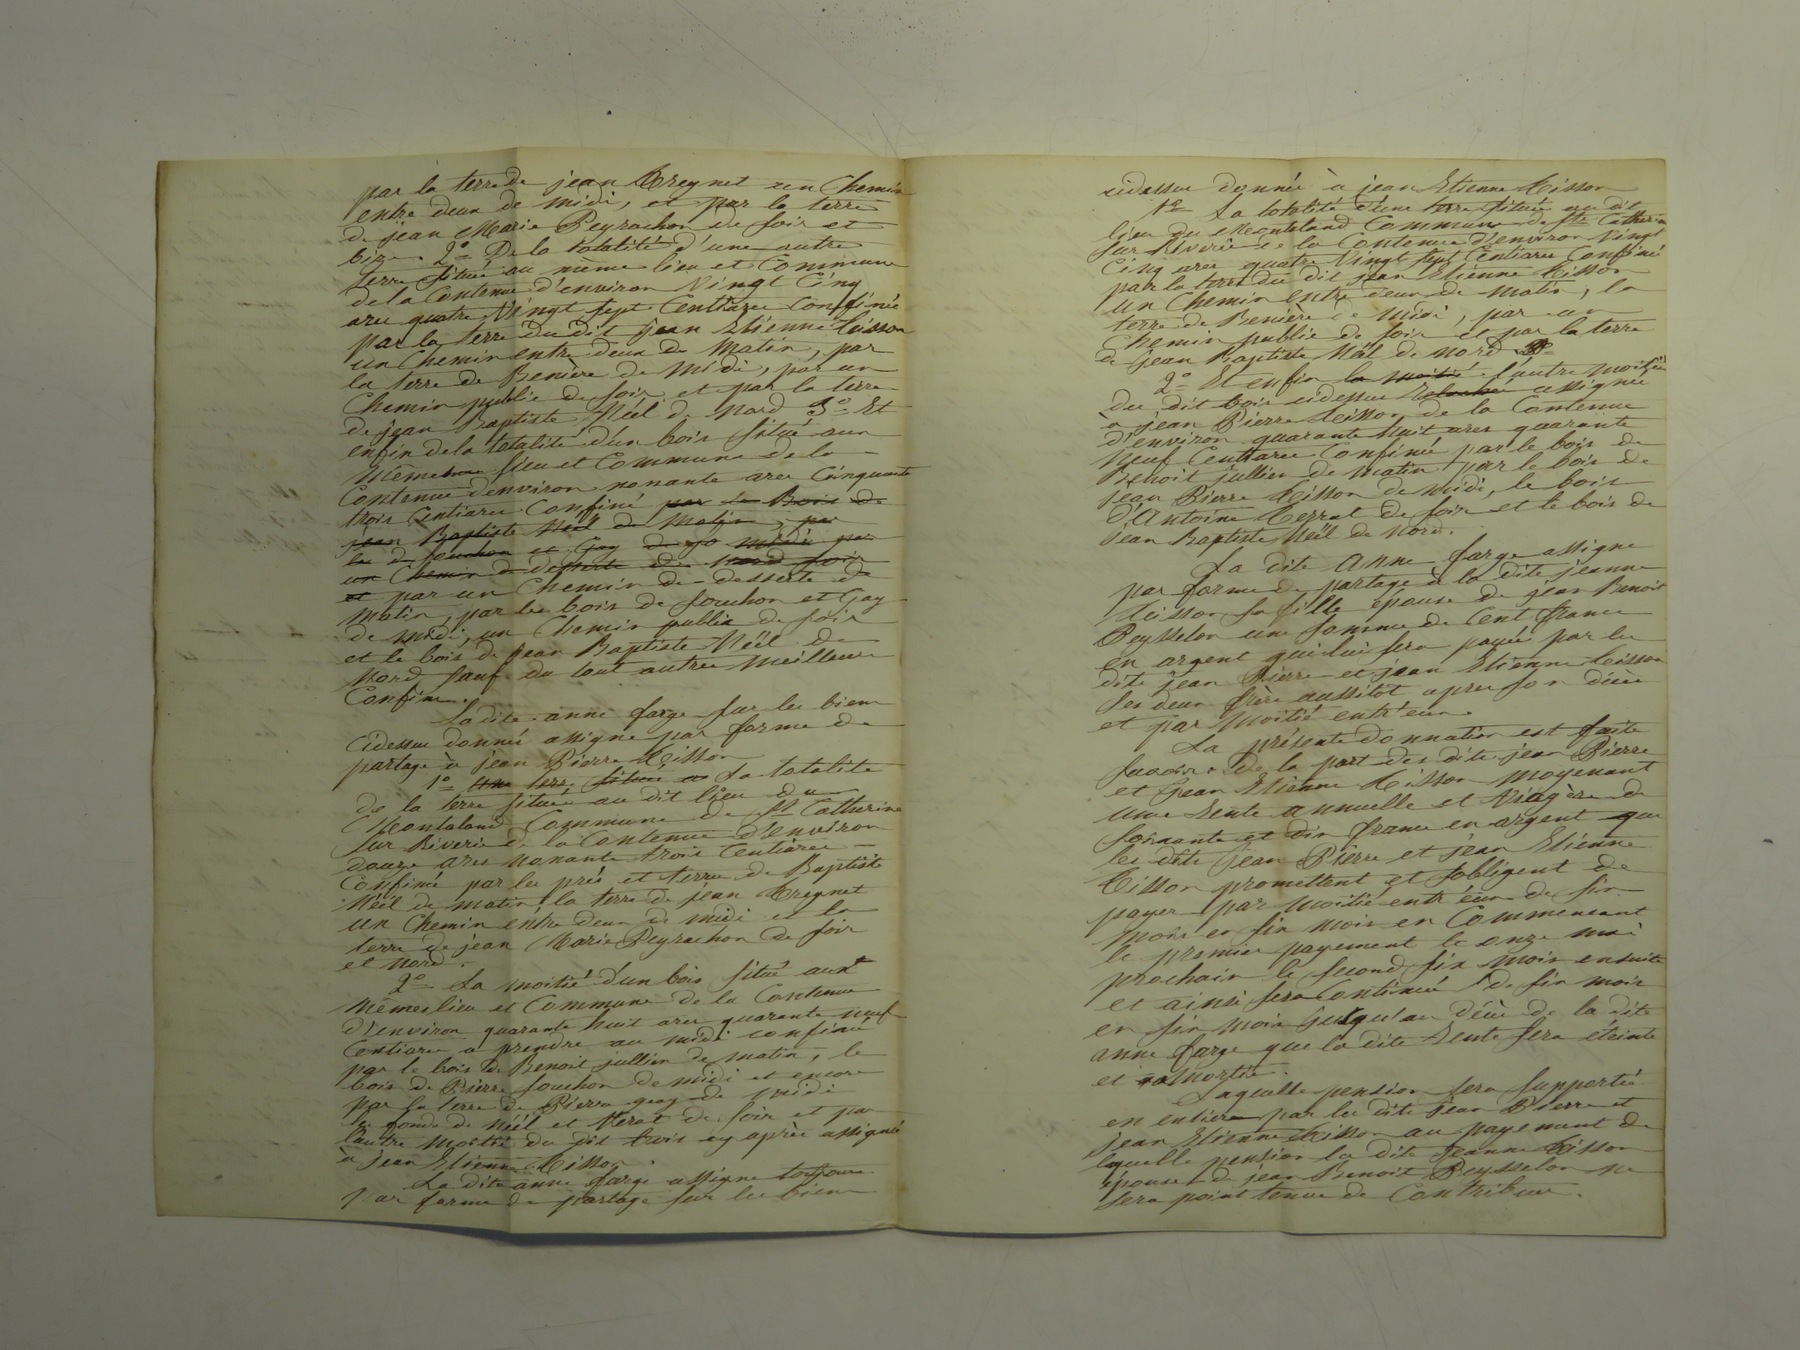 par la terre de jean Tregnet un Chemin
entre deux de midi, et par la terre
de jean Marie Peyrachon de soir et
bize. 2º De la totalité d'une autre
terre située au même lieu et Commune
de la Contenue d'environ Vingt Cinq
ares quatre Vingt sept Centiares confinée
par la terre du dit jean Etienne Tisson
un Chemin entre deux de Matin, par
la terre de Benière de Midi, par un
Chemin public de soir et par la terre
de jean Baptiste Néel de Nord 3º Et
enfin de la totalité d'un bois situé aux
Même lieu et Commune de la
Contenue d'environ nonante ares Cinquante
trois Centiares Confiné par le Bois de
jean Baptiste Néel de Matin, par
les de Souchon et Gay de midi par
un Chemin de desserte de Nord soir
et par un Chemin de desserte de
Matin, par les bois de Souchon et Gay
de midi, un Chemin public de soir
et le bois de jean Baptiste Néel de
Nord sauf du tout autres meilleurs
Confins.
La dite anne farge sur les biens
Cidessus donnés assigne par forme de
partage à jean Pierre Tisson
1º Une terre située a La totalité
de la terre située au dit lieu du
Montaland Commune de Ste Catherine
sur Riverie de la Contenue d'environ
douze ares nonante trois Centiares
Confinée par les prés et terres de Baptiste
Néel de matin, la terre de jean Tregnet
un Chemin entre deux de midi et la
terre de jean Marie Peyrachon de soir
et Nord.
2º La moitié d'un bois situé aux
mêmes lieu et Commune de la Contenue
d'environ quarante huit ares quarante neuf
Centiares a prendre au midi confiné
par le bois de Benoit jullien de matin, le
bois de Pierre souchon de midi et encore
par la terre de Pierre gay de midi
le fonds de Néel et Verat de soir et par
l'autre moitié du dit bois cy après assignée
à jean Etienne Tisson.
La dite anne farge assigne toujours
Par forme de partage sur les biens
cidessus donnés à jean Etienne Tisson
1º La totalité d'une terre située au dit
lieu du Montaland Commune de Ste Catherine
sur Riverie de la Contenue d'environ Vingt
Cinq ares quatre Vingt sept Centiares Confinée
par la terre du dit jean Etienne Tisson
un Chemin entre deux de Matin, la
terre de Benière de Midi, par un
Chemin public de soir et par la terre
de jean Baptiste Néel de nord
2º Et enfin la moitié l'autre moitié
du dit bois cidessus assignée
à jean Pierre Tisson de la Contenue
d'environ quarante huit ares quarante
Neuf Centiares Confiné par le bois de
Benoit jullien de matin par le bois de
jean Pierre Tisson de midi, le bois
d'Antoine Verrat de soir et le bois de
jean Baptiste Néel de Nord.
La dite Anne farge assigne
par forme de partage à la dite jeanne
Tisson sa fille épouse de jean Benoit
Peysselon une somme de Cent francs
en argent qui lui sera payée par les
dits jean Pierre et jean Etienne Tisson
ses deux frère aussitôt apres son décès
et par Moitié entr'eux.
La présente donnation est faite
savoir: de la part des dits jean Pierre
et jean Etienne Tisson moyenant
une rente annuelle et Viagère de
soixante et dix francs en argent que
les dits jean Pierre et jean Etienne
Tisson promettent et sobligent de
payer par moitié entr'eux de six
mois en six mois en Commencant
le premier payement le onze mai
prochain le second six mois ensuite
et ainsi sera Continué de six mois
en six mois jusqu'au décès de la dite
anne farge que la dite rente sera éteinte
et amortie.
Laquelle pension sera supportée
en entiere par les dits jean Pierre et
jean Etienne Tisson au payement de
laquelle pension la dite jeanne Tisson
épouse de jean Benoit Peysselon ne
sera point tenue de Contribuer.